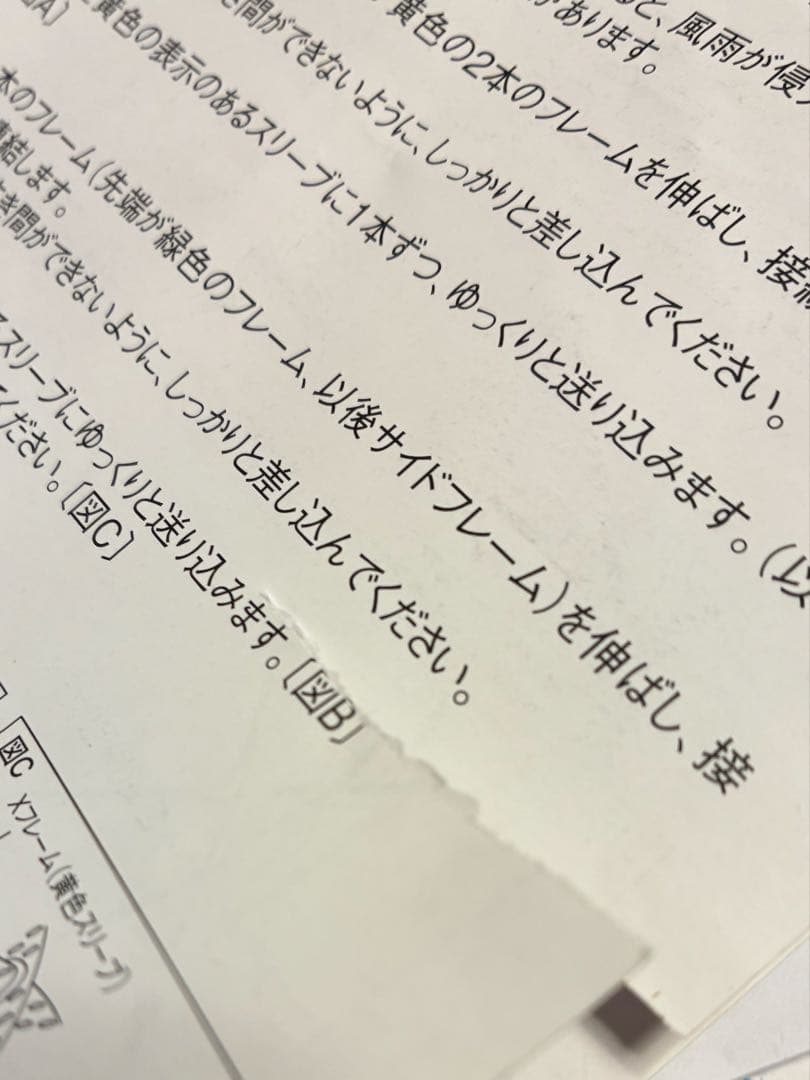 と、風雨が侵
があります。
黄色の2本のフレームを伸ばし、接続
き間ができないように、しっかりと差し込んでください。
黄色の表示のあるスリーブに1本ずつ、ゆっくりと送り込みます。(以
図A〕
本のフレーム(先端が緑色のフレーム、以後サイドフレーム)を伸ばし、接
連結します。
き間ができないように、しっかりと差し込んでください。
スリーブにゆっくりと送り込みます。〔図B〕
ください。〔図C〕
図C
Xフレーム(黄色スリーブ)